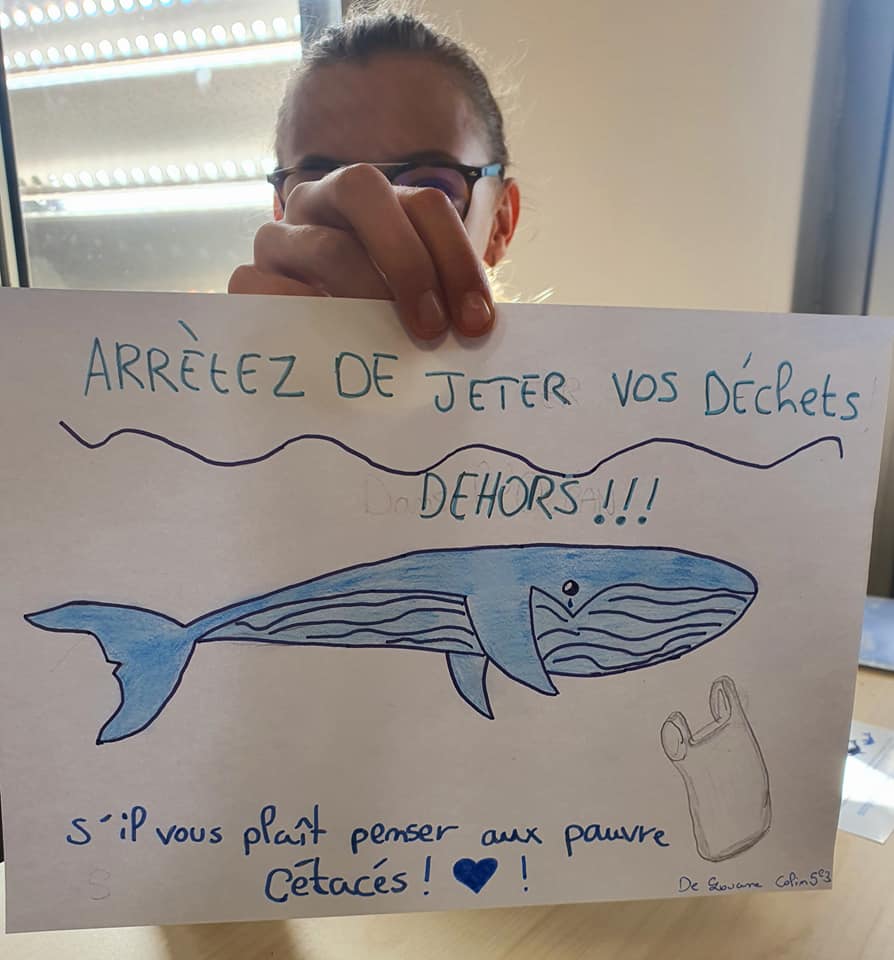 ARRÈtEZ DE JETER VOS DÉchets
DEHORS!!!
s'il vous plaît penser aux pauvre
Cétacés! ♥ !
De Colin 5e3